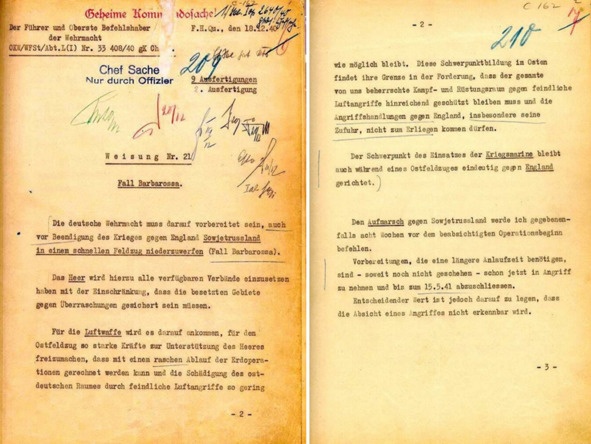 Geheime Kommandosache
Der Führer und Oberste Befehlshaber
der Wehrmacht
OKW/WFSt/Abt.L(I) Nr. 33 408/40 gK Chefs.
F.H.Qu., den 18.12.40
Chef Sache
Nur durch Offizier
209
9 Ausfertigungen
2. Ausfertigung
Weisung Nr. 21
Fall Barbarossa.
Die deutsche Wehrmacht muss darauf vorbereitet sein, auch
vor Beendigung des Krieges gegen England Sowjetrussland
in einem schnellen Feldzug niederzuwerfen (Fall Barbarossa).
Das Heer wird hierzu alle verfügbaren Verbände einzusetzen
haben mit der Einschränkung, dass die besetzten Gebiete
gegen Überraschungen gesichert sein müssen.
Für die Luftwaffe wird es darauf ankommen, für den
Ostfeldzug so starke Kräfte zur Unterstützung des Heeres
freizumachen, dass mit einem raschen Ablauf der Erdopera-
tionen gerechnet werden kann und die Schädigung des ost-
deutschen Raumes durch feindliche Luftangriffe so gering
- 2 -
- 2 -
C 162
210
wie möglich bleibt. Diese Schwerpunktbildung im Osten
findet ihre Grenze in der Forderung, dass der gesamte
von uns beherrschte Kampf- und Rüstungsraum gegen feindliche
Luftangriffe hinreichend geschützt bleiben muss und die
Angriffshandlungen gegen England, insbesondere seine
Zufuhr, nicht zum Erliegen kommen dürfen.
Der Schwerpunkt des Einsatzes der Kriegsmarine bleibt
auch während eines Ostfeldzuges eindeutig gegen England
gerichtet.
Den Aufmarsch gegen Sowjetrussland werde ich gegebenen-
falls acht Wochen vor dem beabsichtigten Operationsbeginn
befehlen.
Vorbereitungen, die eine längere Anlaufzeit benötigen,
sind - soweit noch nicht geschehen - schon jetzt in Angriff
zu nehmen und bis zum 15.5.41 abzuschliessen.
Entscheidender Wert ist jedoch darauf zu legen, dass
die Absicht eines Angriffes nicht erkennbar wird.
- 3 -